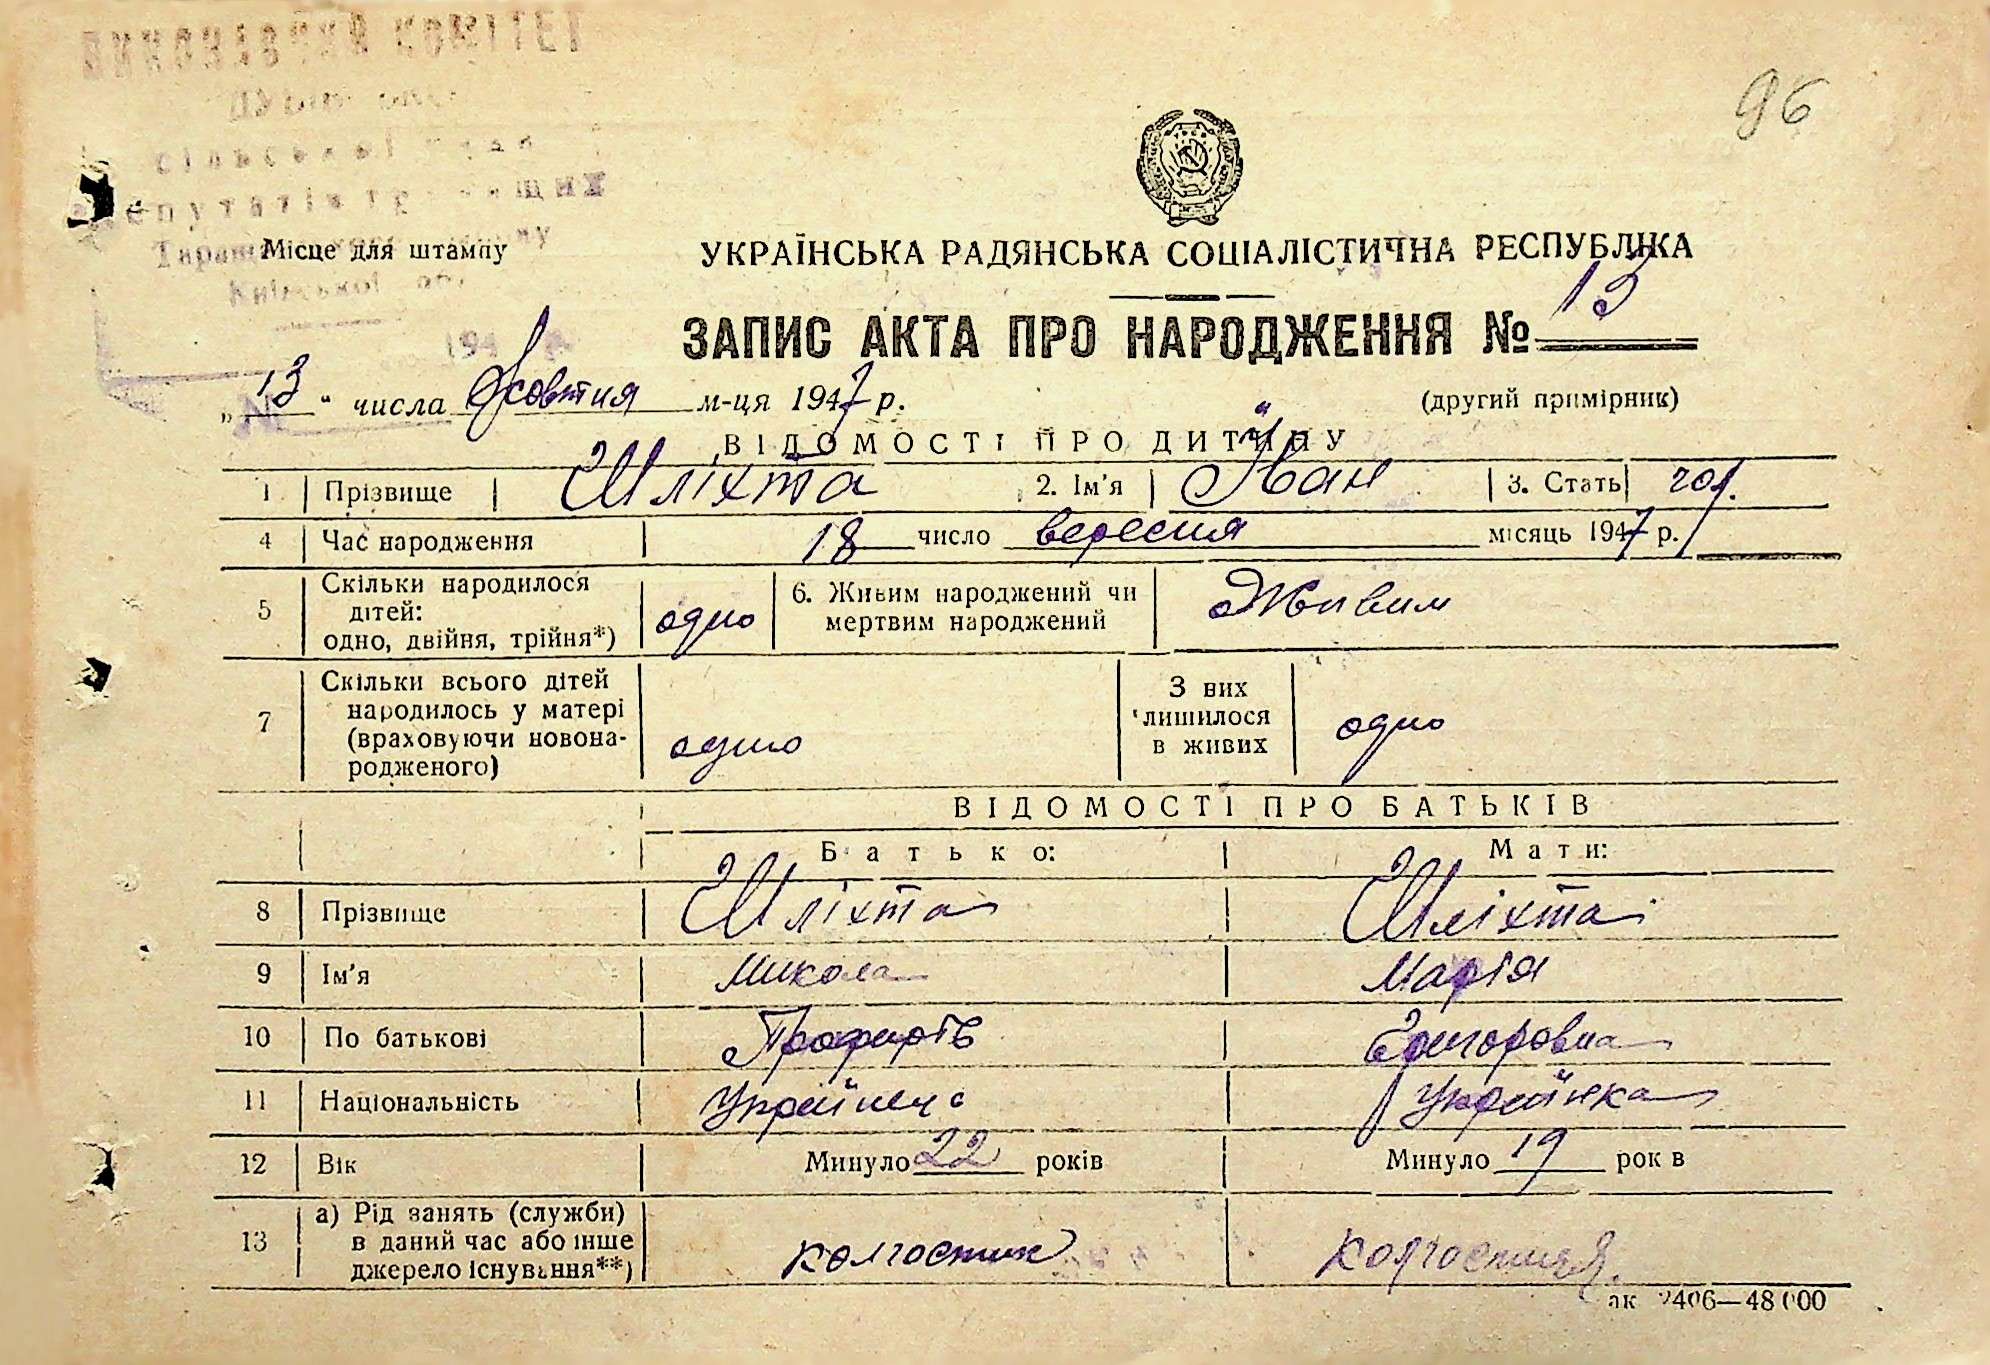 ВИКОНАВЧИЙ КОМІТЕТ
сільської ради
депутатів трудящих
Таращанського району
Київської обл.
194
96
Місце для штампу
УКРАЇНСЬКА РАДЯНСЬКА СОЦІАЛІСТИЧНА РЕСПУБЛІКА
ЗАПИС АКТА ПРО НАРОДЖЕННЯ № 13
„13“ числа Жовтня м-ця 1947 р.
(другий примірник)
ВІДОМОСТІ ПРО ДИТИНУ
1 Прізвище Шліхта 2. Ім'я Іван 3. Стать чол.
4 Час народження 18 число вересня місяць 1947 р.
5 Скільки народилося дітей: одно, двійня, трійня*) одно 6. Живим народжений чи мертвим народжений Живим
7 Скільки всього дітей народилось у матері (враховуючи новонародженого) одно З них лишилося в живих одно
ВІДОМОСТІ ПРО БАТЬКІВ
Батько: Мати:
8 Прізвище Шліхта Шліхта
9 Ім'я Микола Марія
10 По батькові Григоровна
11 Національність Українець Українка
12 Вік Минуло 22 років Минуло 19 років
13 а) Рід занять (служби) в даний час або інше джерело існування**) колгоспник колгоспниця.
2406—48000